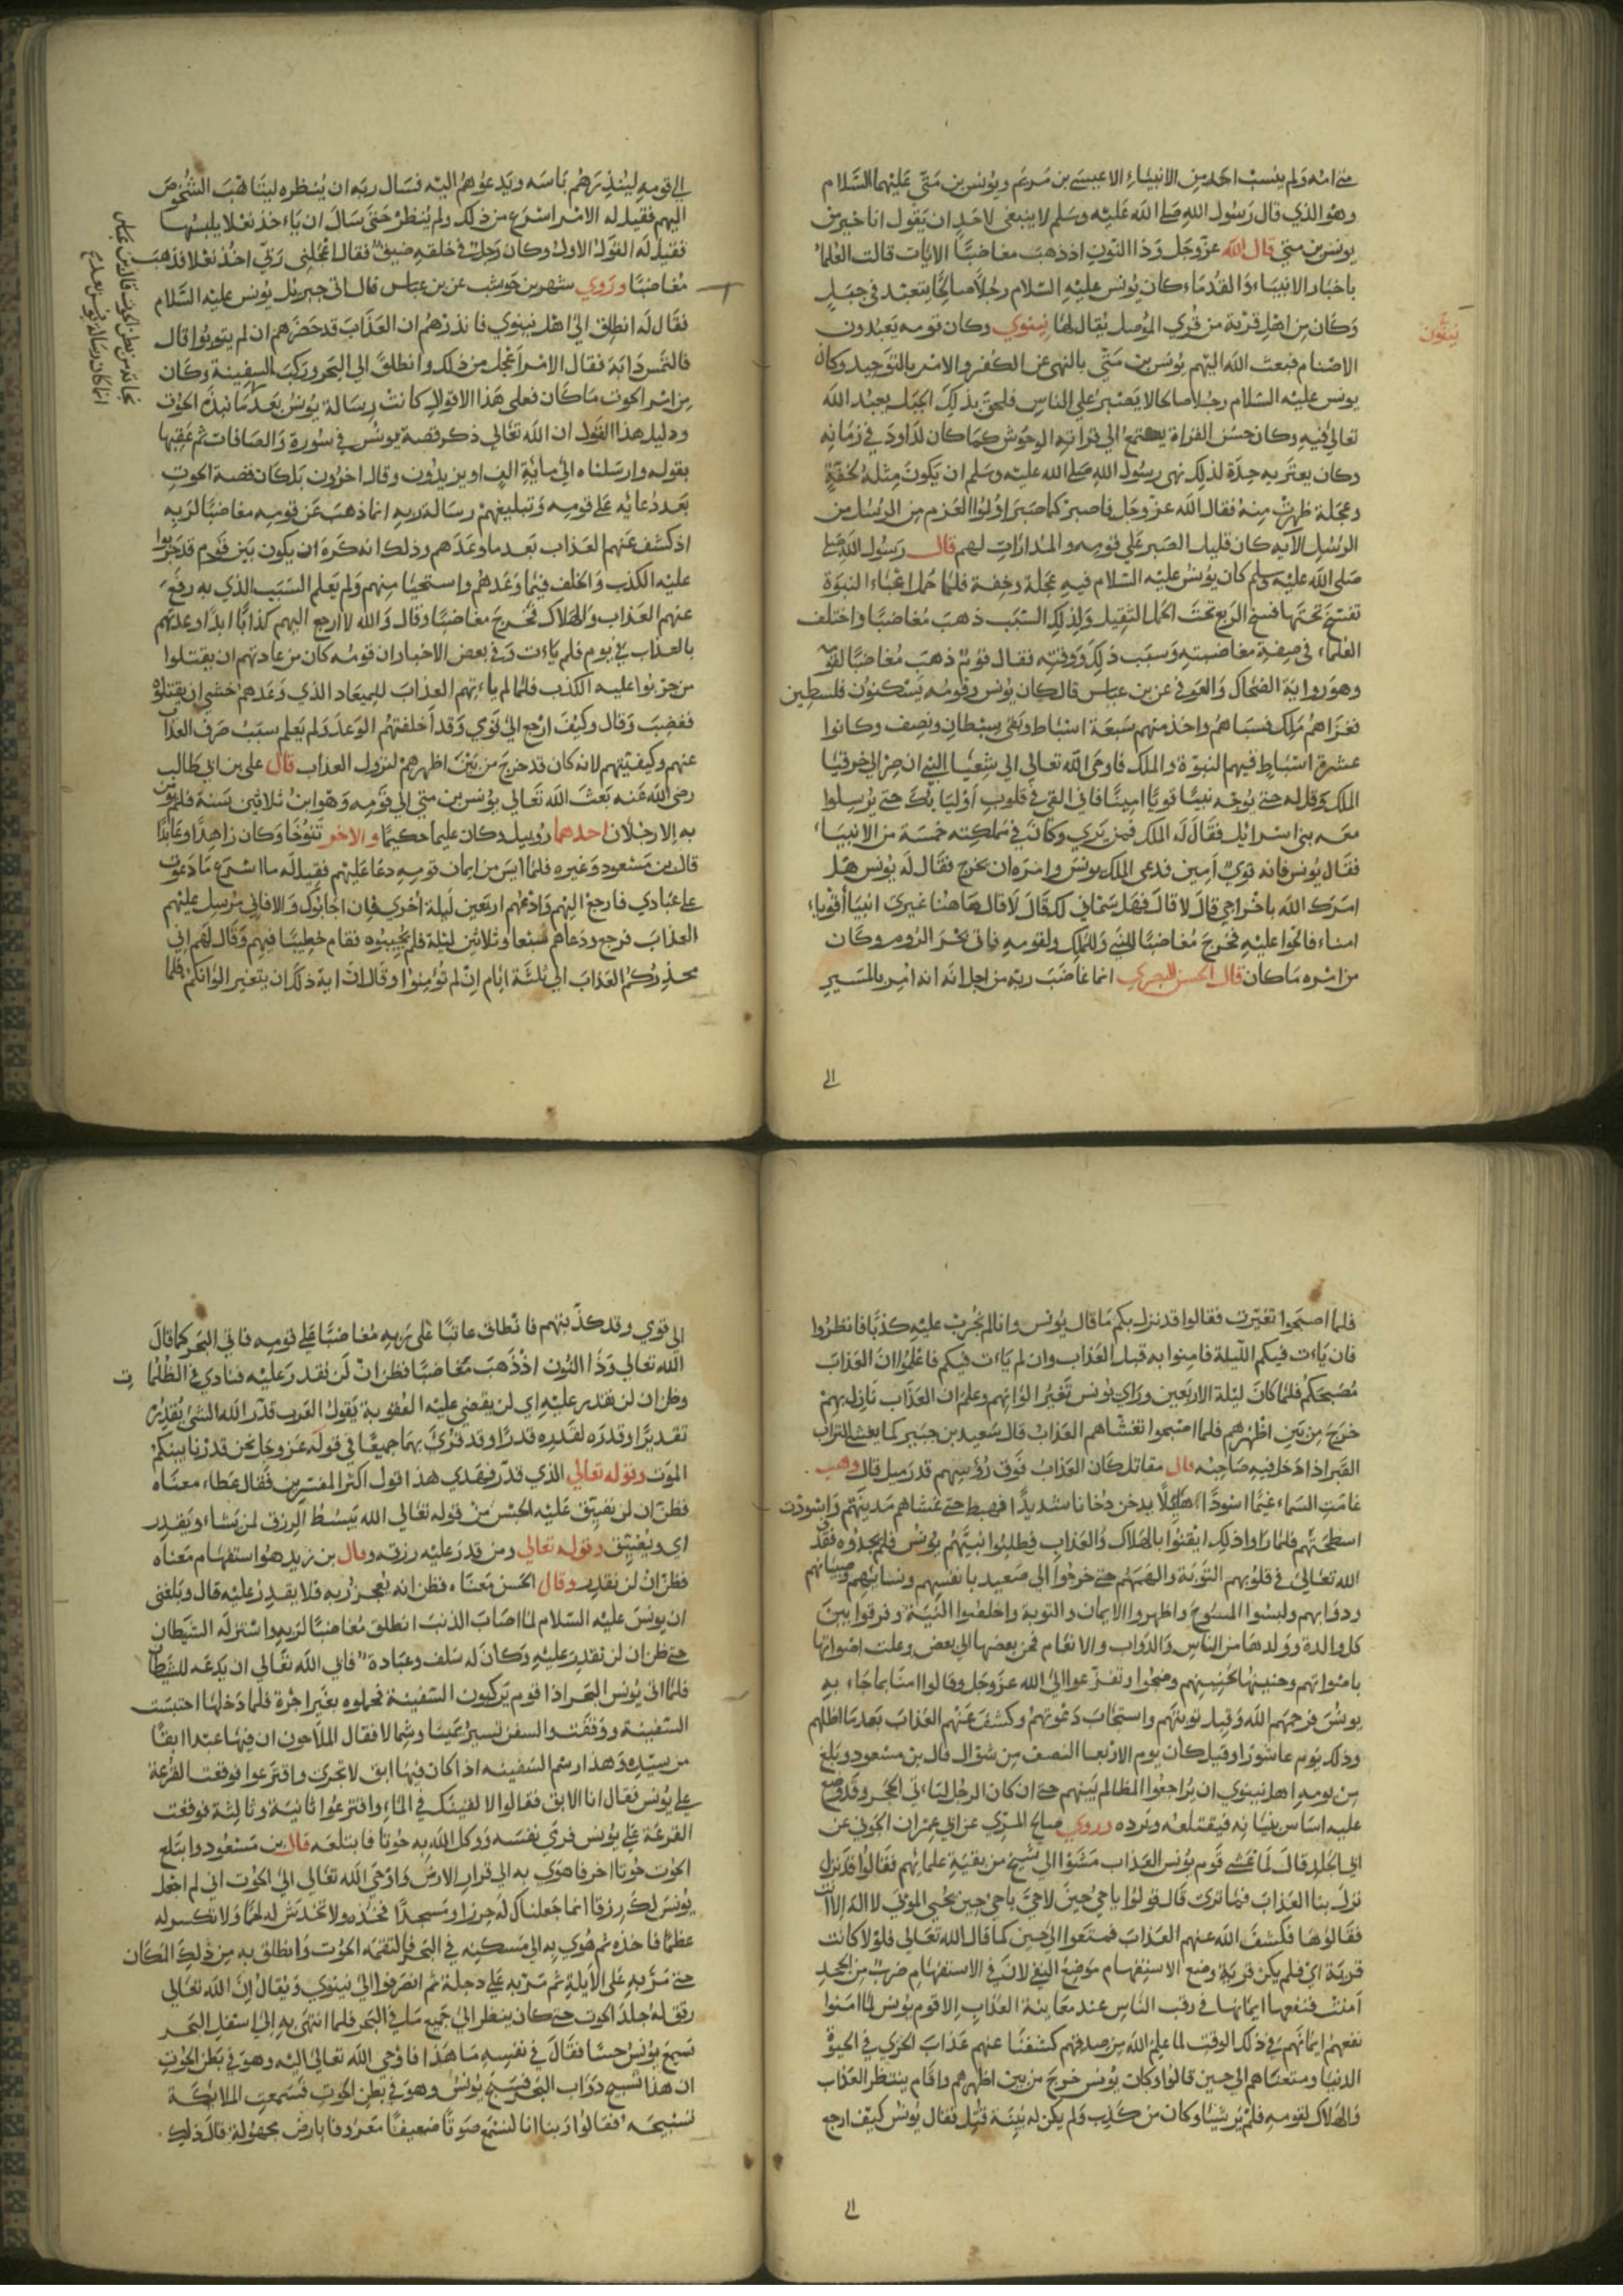 متي امه ولم ينسب احد من الانبياء الا عيسى بن مريم ويونس بن متي عليهما السلام
وهو الذي قال رسول الله صلى الله عليه وسلم لا ينبغي لاحد ان يقول انا خير من
يونس بن متي قال الله عز وجل وذا النون اذ ذهب مغاضبًا الايات قالت العلماء
باخبار الانبياء والقدماء كان يونس عليه السلام رجلًا صالحًا يتعبد في جبل
وكان من اهل قرية من قري الموصل يقال لها نينوي وكان قومه يعبدون
نينون
الاصنام فبعث الله اليهم يونس بن متي بالنهي عن الكفر والامر بالتوحيد وكان
يونس عليه السلام رجلا صالحا لا يصبر علي الناس فلحق بذلك الجبل يعبد الله
تعالي فيه وكان حسن القراة يجتمع الي قراته الوحوش كما كان لداود في زمانه
وكان يعتريه حدة لذلك نهي رسول الله صلى الله عليه وسلم ان يكون مثله لخفة
وعجلة ظهرت منه فقال الله عز وجل فاصبر كما صبر اولوا العزم من الرسل من
الرسل الآية كان قليل الصبر علي قومه والمدارات لهم قال رسول الله صلى
صلى الله عليه وسلم كان يونس عليه السلام فيه عجلة وخفة فلما حمل اعباء النبوة
تفسخ تحتها فسخ الربع تحت الحمل الثقيل ولذلك السبب ذهب مغاضبًا واختلف
العلماء في صفة مغاضبته وسبب ذلك ووقته فقال قوم ذهب مغاضبًا لقومه
وهو رواية الضحاك والعوفي عن بن عباس قال كان يونس وقومه يسكنون فلسطين
فغزاهم ملك فسباهم واخذ منهم سبعة اسباط وبقي سبطان ونصف وكانوا
عشرة اسباط فيهم النبوة والملك فاوحى الله تعالي الي شعيا النبي ان صر الي حزقيا
الملك وقل له حتي يوجه نبيًا قويًا امينًا فاني القي في قلوب اوليائك حتي يرسلوا
معه بني اسرائل فقال له الملك فمن يري وكان في مملكته خمسة من الانبياء
فقال يونس فانه قوي امين فدعى الملك يونس وامره ان يخرج فقال له يونس هل
امرك الله باخراجي قال لا قال فهل سماني لك قال لا قال هاهنا غيري انبياء أقوياء
امناء فالحوا عليه فخرج مغاضبًا للنبي وللملك ولقومه فاتى بحر الروم وكان
من امره ما كان قال الحسن البصري انما غاضب ربه من اجل انه امر بالمسير
الى
الي قومه لينذرهم باسه ويدعوهم اليه فسال ربه ان ينظره ليتاهب الشخوص
اليهم فقيل له الامر اسرع من ذلك ولم ينظر حتى سال ان ياءخذ نعلا يلبسها
فقيل له القول الاول وكان رجل في خلقه ضيق فقال اعجلني ربي اخذ نعلا فذهب
مغاضبًا وروي شهر بن حوشب عن بن عباس قال اتى جبريل يونس عليه السلام
فقال له انطلق الى اهل نينوي فانذرهم ان العذاب قد حضرهم ان لم يتوبوا قال
فالتمس دابة فقال الامر اعجل من ذلك وانطلق الي البحر وركب السفينة وكان
من امر الحوت ما كان فعلي هذا الاقوال كانت رسالة يونس بعد ما نبذه الحوت
ودليل هذا القول ان الله تعالي ذكر قصة يونس في سورة والصافات ثم عقبها
بقوله وارسلناه الى ماية الف او يزيدون وقال اخرون بل كان قصة الحوت
بعد دعائه على قومه وتبليغهم رسالة ربه انما ذهب عن قومه مغاضبًا لربه
اذ كشف عنهم العذاب بعد ما وعدهم وذلك انه كره ان يكون بين قوم قد جربوا
عليه الكذب والخلف فيما وعدهم واستحيا منهم ولم يعلم السبب الذي به رفع
عنهم العذاب والهلاك فخرج مغاضبًا وقال والله لا ارجع اليهم كذابًا ابدًا وعدتهم
بالعذاب في يوم فلم ياءت وفي بعض الاخبار ان قومه كان من عادتهم ان يقتلوا
من جربوا عليه الكذب فلما لم ياءتهم العذاب للميعاد الذي وعدهم خشي ان يقتلوه
فغضب وقال وكيف ارجع الى قومي وقد أخلفتهم الوعد ولم يعلم سبب صرف العذاب
عنهم وكيفيتهم لانه كان قد خرج من بين اظهرهم لنزول العذاب قال على بن ابي طالب
رضى الله عنه بعث الله تعالي يونس بن متي الي قومه وهو ابن ثلاثين سنة فلم يومن
به الا رجلان احدهما روبيل وكان عليما حكيمًا والاخر تنوخا وكان زاهدًا وعابدًا
قال بن مسعود وغيره فلما ايس من ايمان قومه دعا عليهم فقيل له ما اسرع ما دعوت
على عبادي فارجع اليهم وادعهم اربعين ليلة اخري فان اجابوك والا فاني مرسل عليهم
العذاب فرجع ودعاهم سبعا وثلاثين ليلة فلم يجيبوه فقام خطيبًا فيهم وقال لهم اني
محذركم العذاب الي ثلثة ايام ان لم تؤمنوا وقال ان اية ذلك ان يتغير الوانكم فلما
فلما اصبحوا تغيرت فقالوا قد نزل بكم ما قال يونس وانا لم نجرب عليه كذبًا فانظروا
فان ياءت فيكم الليلة فامنوا به قبل العذاب وان لم ياءت فيكم فاعلموا ان العذاب
مصبحكم فلما كان ليلة الاربعين وراي يونس تغير الوانهم وعلم ان العذاب نازل بهم
خرج من بين اظهرهم فلما اصبحوا تغشاهم العذاب قال سعيد بن جبير كما يغشي التراب
القبر اذا دخل فيه صاحبه قال مقاتل كان العذاب فوق رؤسهم قدر ميل قال وهب
غامت السماء غيمًا اسودًا هائلًا يدخن دخانا شديدًا فهبط حتى غشاهم مدينتهم واسودت
اسطحتهم فلما راوا ذلك ايقنوا بالهلاك والعذاب فطلبوا نبيهم يونس فلم يجدوه فقذف
الله تعالى في قلوبهم التوبة والهمهم حتي خرجوا الى صعيد بانفسهم ونسايهم وصبيانهم
ودوابهم ولبسوا المسوح واظهروا الايمان والتوبة واخلصوا النية وفرقوا بين
كل والدة وولدها من الناس والدواب والانعام فحن بعضها الي بعض وعلت اصواتها
باصواتهم وحنينها بحنينهم وضجوا وتضرعوا الى الله عز وجل وقالوا امنا بما جاء به
يونس فرحمهم الله وقبل توبتهم واستجاب دعوتهم وكشف عنهم العذاب بعد ما اظلهم
وذلك يوم عاشورا وقيل كان يوم الاربعا النصف من شوال قال بن مسعود وبلغ
من يومه اهل نينوي ان يراجعوا المظالم بينهم حتى ان كان الرجل لياءتي الحجر وقد وضع
عليه اساس بنيانه فيقتلعه ويرده وروي صالح المري عن ابي عمران الجوني عن
ابي الجلد قال لما غشي قوم يونس العذاب مشوا الي شيخ من بقية علمائهم فقالوا قد نزل
نزل بنا العذاب فما ترى قال قولوا يا حي حين لا حي يا حي حين يحيي الموتى لا اله الا انت
فقالوها فكشف الله عنهم العذاب فمتعوا الي حين كما قال الله تعالي فلولا كانت
قرية اي فلم يكن قرية وضع الاستفهام موضع النفي لان في الاستفهام ضرب من الجحد
آمنت فنفعها ايمانها في رقب الناس عند معاينة العذاب الا قوم يونس لما امنوا
نفعهم ايمانهم في ذلك الوقت لما علم الله من صدقهم كشفنا عنهم عذاب الخزي في الحيوة
الدنيا ومتعناهم الي حين قالوا وكان يونس خرج من بين اظهرهم واقام ينتظر العذاب
والهلاك لقومه فلم ير شيئا وكان من كذب ولم يكن له بينة قتل فقال يونس كيف ارجع
الى
الي قومي وقد كذبتهم فانطلق عاتبًا على ربه مغاضبًا على قومه فاتي البحر كما قال
الله تعالي وذا النون اذ ذهب مغاضبًا فظن ان لن نقدر عليه فنادي في الظلمات
وظن ان لن نقدر عليه اي لن يقضي عليه العقوبة يقول العرب قدر الله الشيء يقدره
تقديرًا وقدره لقدره قدرًا وقد قرئ بهما جميعًا في قوله عز وجل نحن قدرنا بينكم
الموت وقوله تعالي الذي قدر فهدي هذا قول اكثر المفسرين فقال عطاء معناه
فظن ان لن نضيق عليه الحبس من قوله تعالي الله يبسط الرزق لمن يشاء ويقدر
اي ويضيق وقوله تعالي ومن قدر عليه رزقه وقال بن زيد هو استفهام معناه
فظن ان لن نقدر وقال الحسن معناه فظن انه يعجز ربه فلا يقدر عليه قال وبلغني
ان يونس عليه السلام لما اصاب الذنب انطلق مغاضبًا لربه واستزله الشيطان
حتى ظن ان لن نقدر عليه وكان له سلف وعبادة فابي الله تعالي ان يدعه للشيطان
فلما اتى يونس البحر اذا قوم يركبون السفينة فحملوه بغير اجرة فلما دخلها احتبست
السفينة ووقفت والسفن تسير يمينا وشمالا فقال الملاحون ان فيها عبدا ابقًا
من سيده وهذا رسم السفينه اذا كان فيها ابق لا تجري واقترعوا فوقعت القرعة
على يونس فقال انا الابق فقالوا لا لفينك في الماء واقترعوا ثانية وثالثة فوقعت
القرعة على يونس فرمى نفسه ووكل الله به حوتا فابتلعه قال بن مسعود وابتلع
الحوت حوتا اخر فاهوى به الي قرار الارض واوحى الله تعالي الى الحوت اني لم اجعل
يونس لك رزقا انما جعلناك له حرزا ومسجدًا فخذه ولا تخدش له لحمًا ولا تكسر له
عظمًا فاخذه ثم هوي به الي مسكنه في البحر فالتقمه الحوت وانطلق به من ذلك المكان
حتى مر به على الايلة ثم مر به على دجلة ثم انصرفوا الى نينوي ويقال ان الله تعالي
رقق له جلد الحوت حتى كان ينظر الى جميع ما في البحر فلما انتهى به الى اسفل البحر
سمع يونس حسًا فقال في نفسه ما هذا فاوحي الله تعالى اليه وهو في بطن الحوت
ان هذا تسبيح دواب البحر فسبح يونس وهو في بطن الحوت فسمعت الملائكة
تسبيحه فقالوا ربنا انا لنسمع صوتًا ضعيفًا معروفا بارض مجهولة قال ذلك